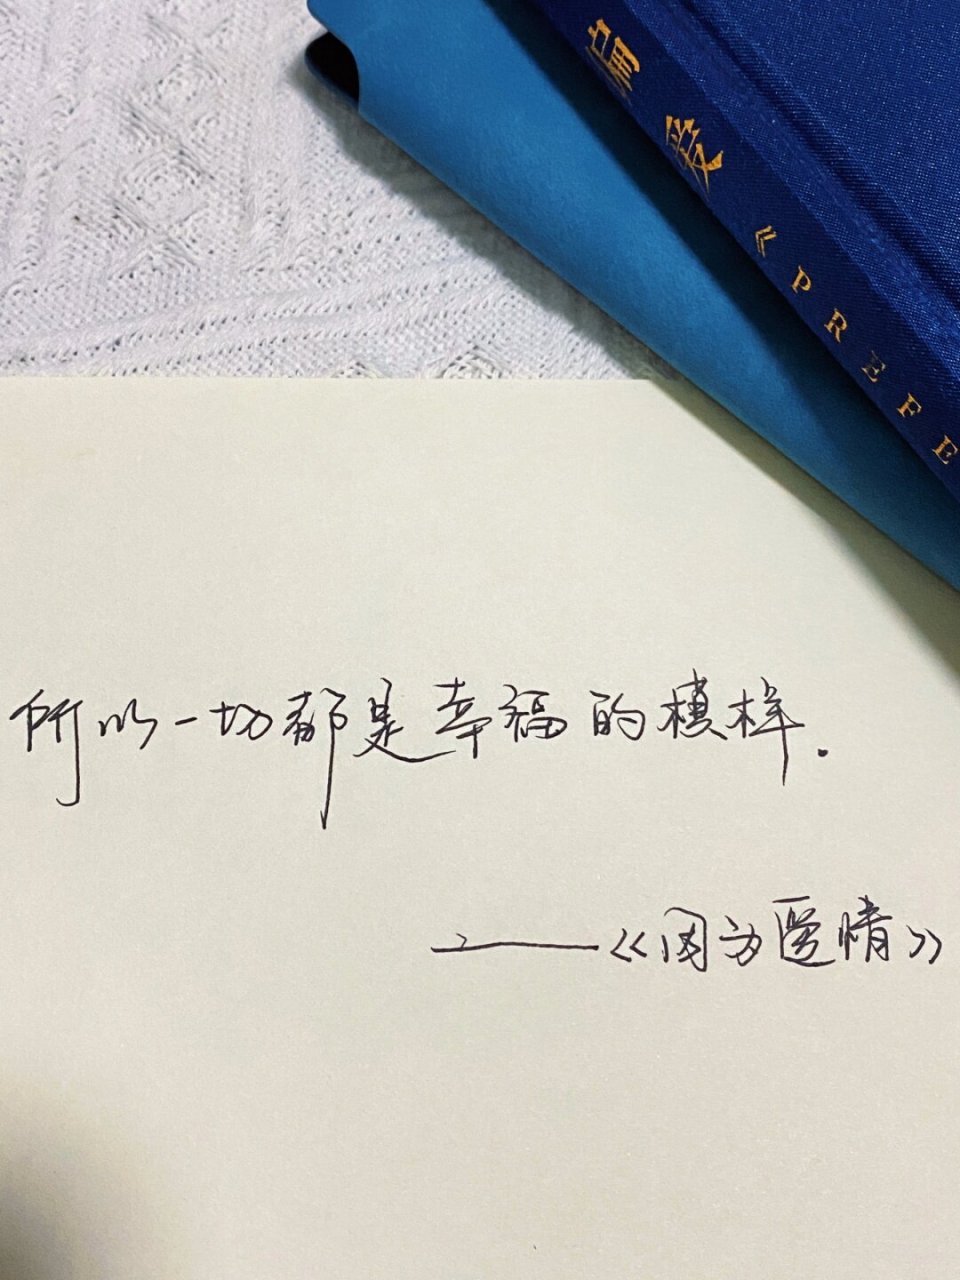 偏爱《PREFE
所以一切都是幸福的模样.
——《因为爱情》